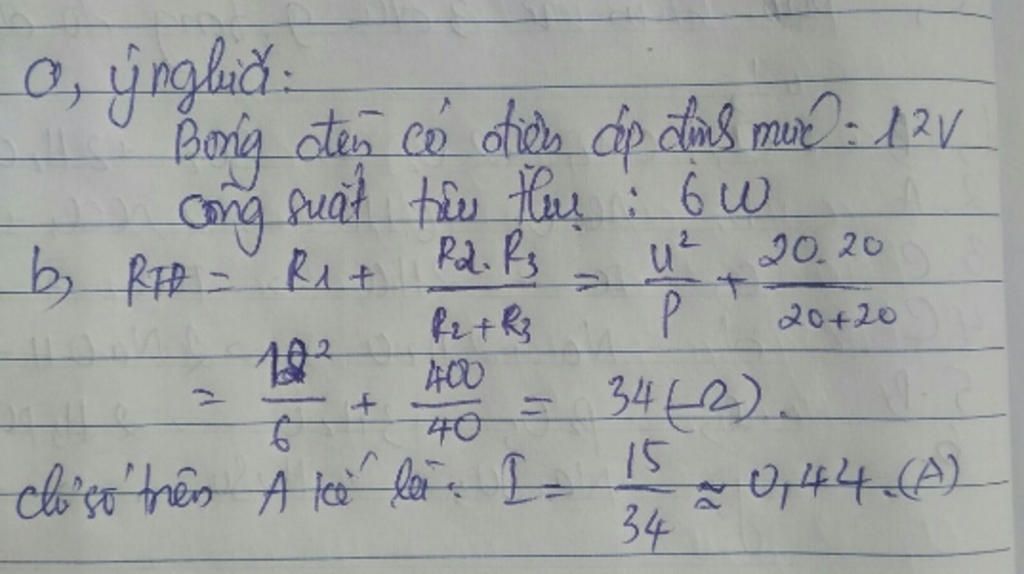 a, ý nghĩa:
Bóng đèn có điện áp định mức: 12V
công suất tiêu thụ: 6W
b, RTĐ = R1 + R2.R3 / R2+R3 = U² / P + 20.20 / 20+20
= 12² / 6 + 400 / 40 = 34 (Ω).
chỉ số trên A kế là: I = 15 / 34 ≈ 0,44.(A)